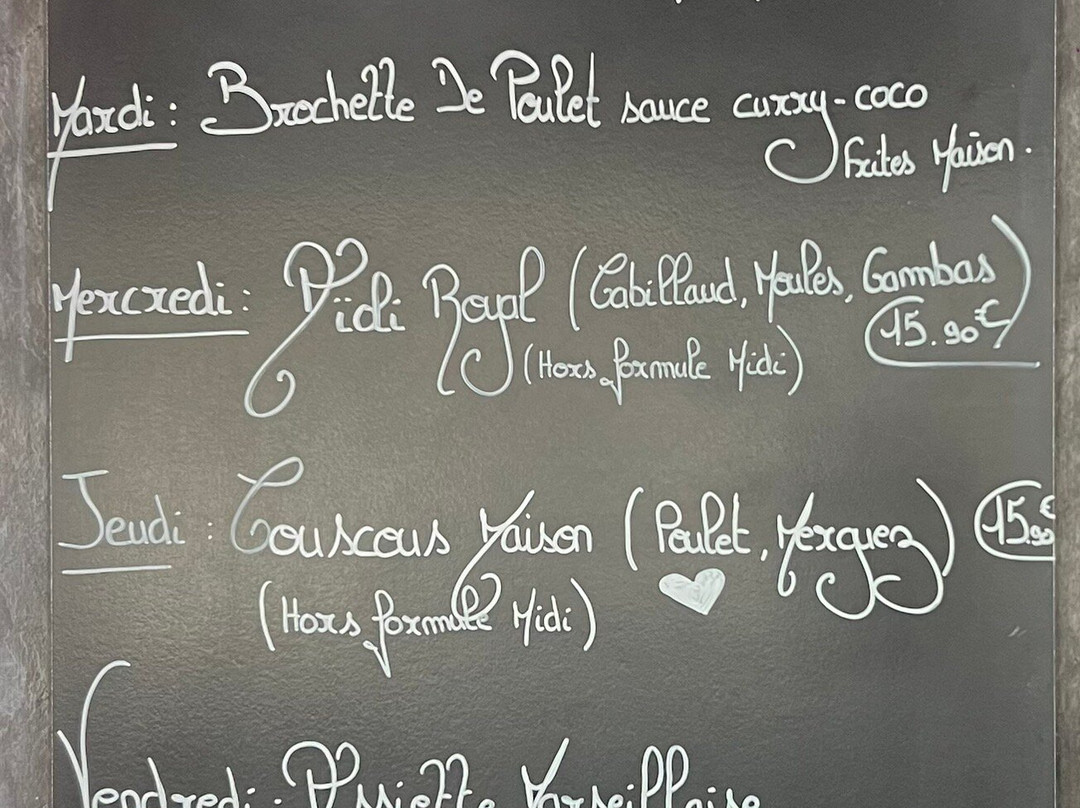 Mardi : Brochette De Poulet sauce curry-coco
Frites Maison.
Mercredi : Aïoli Royal (Cabillaud, Moules, Gambas)
(Hors formule Midi) 15.90€
Jeudi : Couscous Maison (Poulet, Merguez) 15.90€
(Hors formule Midi)
Vendredi : Assiette Marseillaise